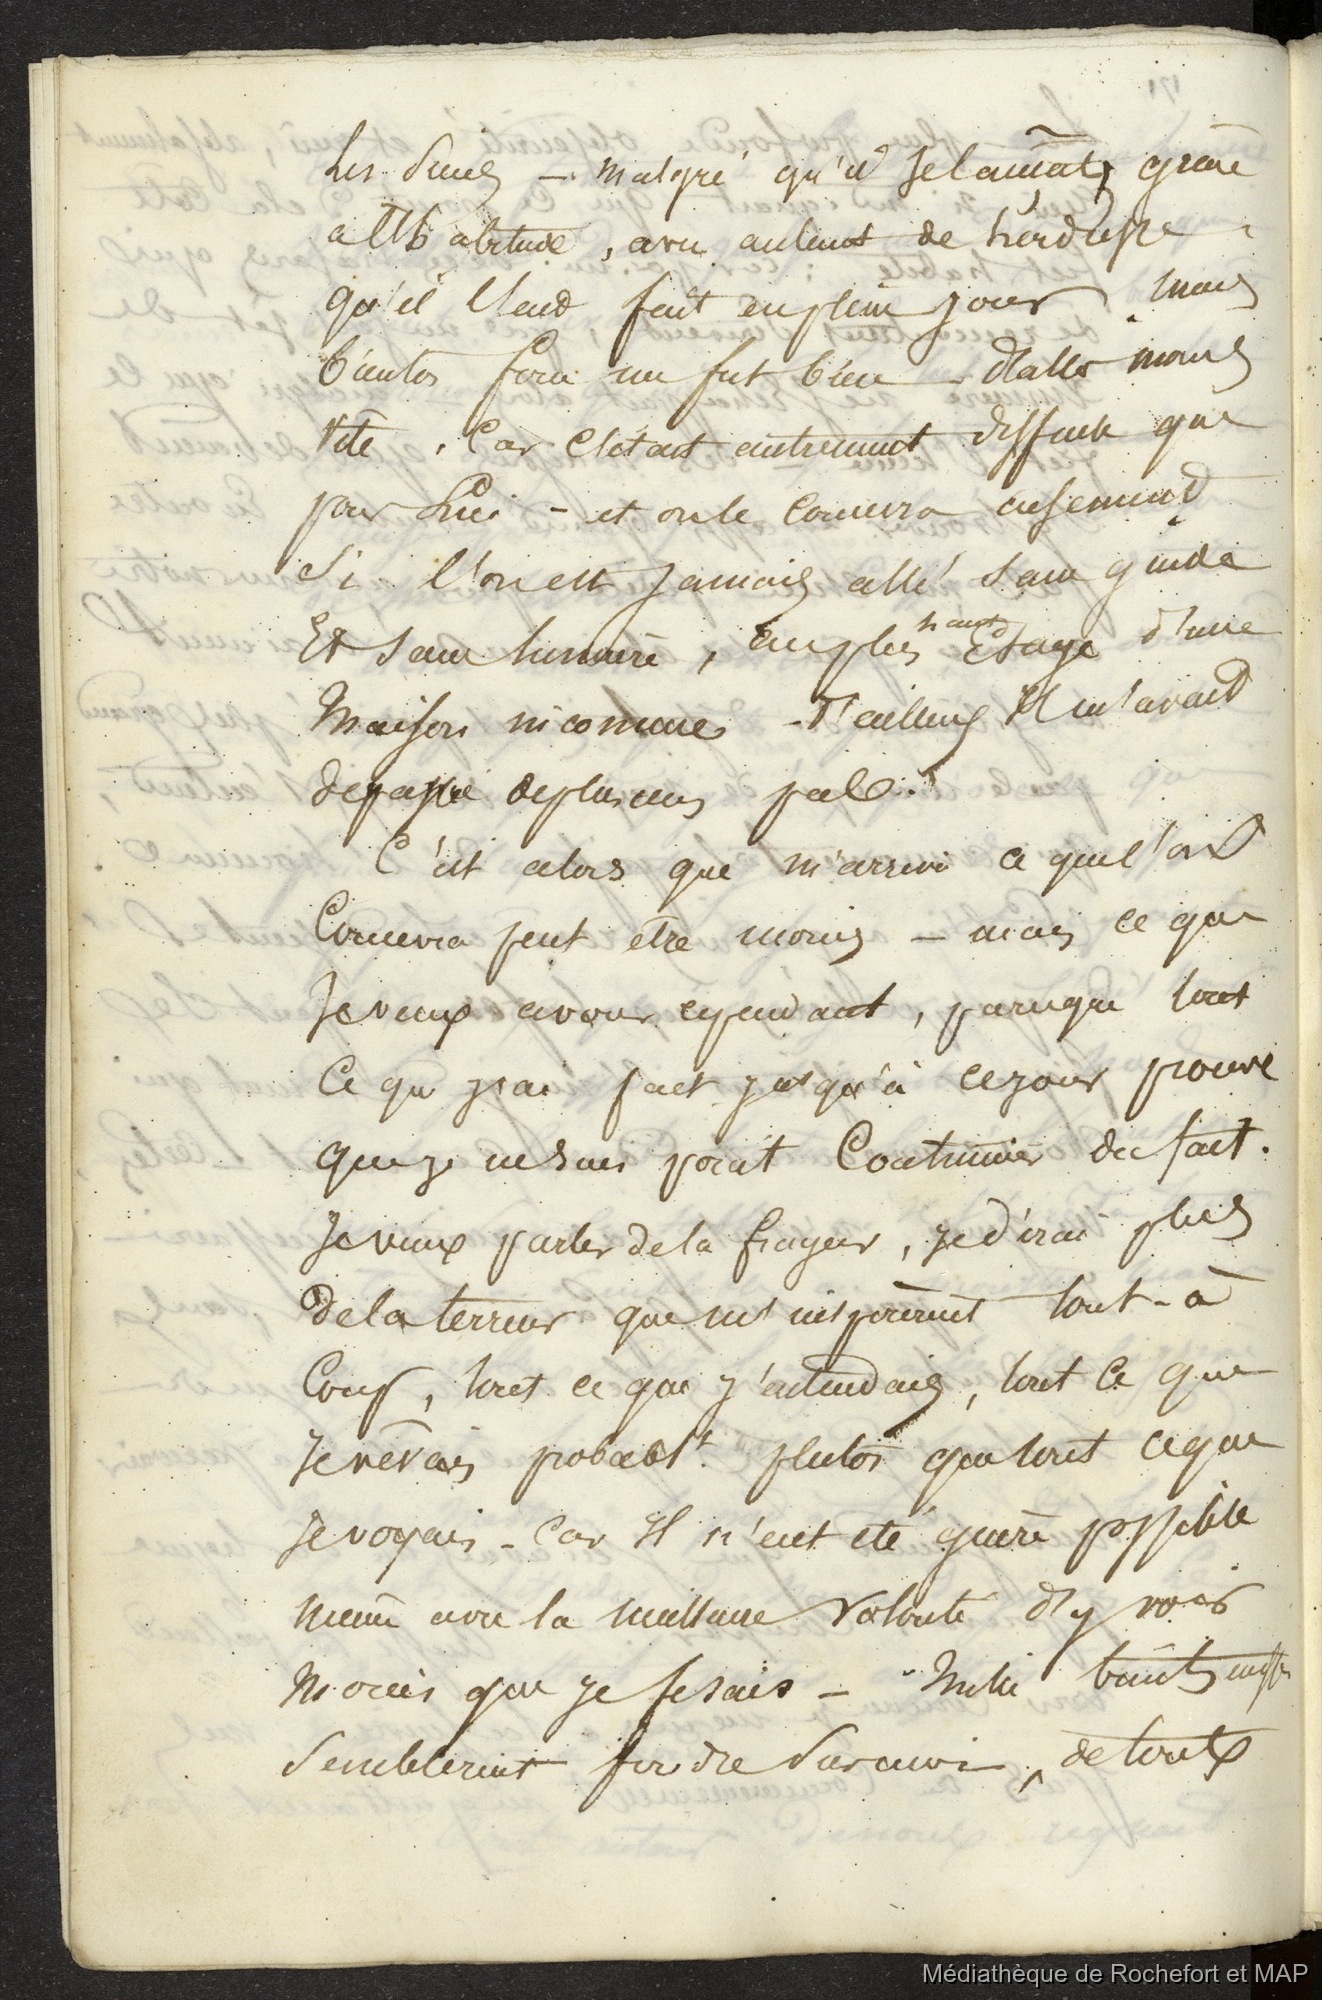 les suivis – malgré qu'il se lançât, grace
à l'habitude, avec autant de hardiesse
qu'il l'eut fait en plein jour, mais
bientôt force me fut bien d'aller moins
vite, car c'était autrement difficile que
pour lui – et on le concevra aisement
si l'on est jamais allé sans guide
Et sans lumière, au plus haut Etage d'une
Maison inconnue – D'ailleurs Il m'avait
depassé de plusieurs pas.
C'est alors que m'arriva ce que l'on
Concevra peut etre moins – mais ce que
Je veux avouer cependant, parceque tout
Ce que j'ai fait jusqu'à ce jour prouve
que je ne suis point Coutumier du fait.
Je veux parler de la frayeur, je dirai plus
de la terreur que m'inspirèrent tout-à
Coup, tout ce que j'entendais, tout ce que
Je rêvais probablt. plutôt que tout ce que
Je voyais – Car Il n'eut eté guère possible
même avec la meilleure volonté d'y voir
moins que je fesais – Mille bruits
Semblerent fondre sur moi, de toutes
Médiathèque de Rochefort et MAP